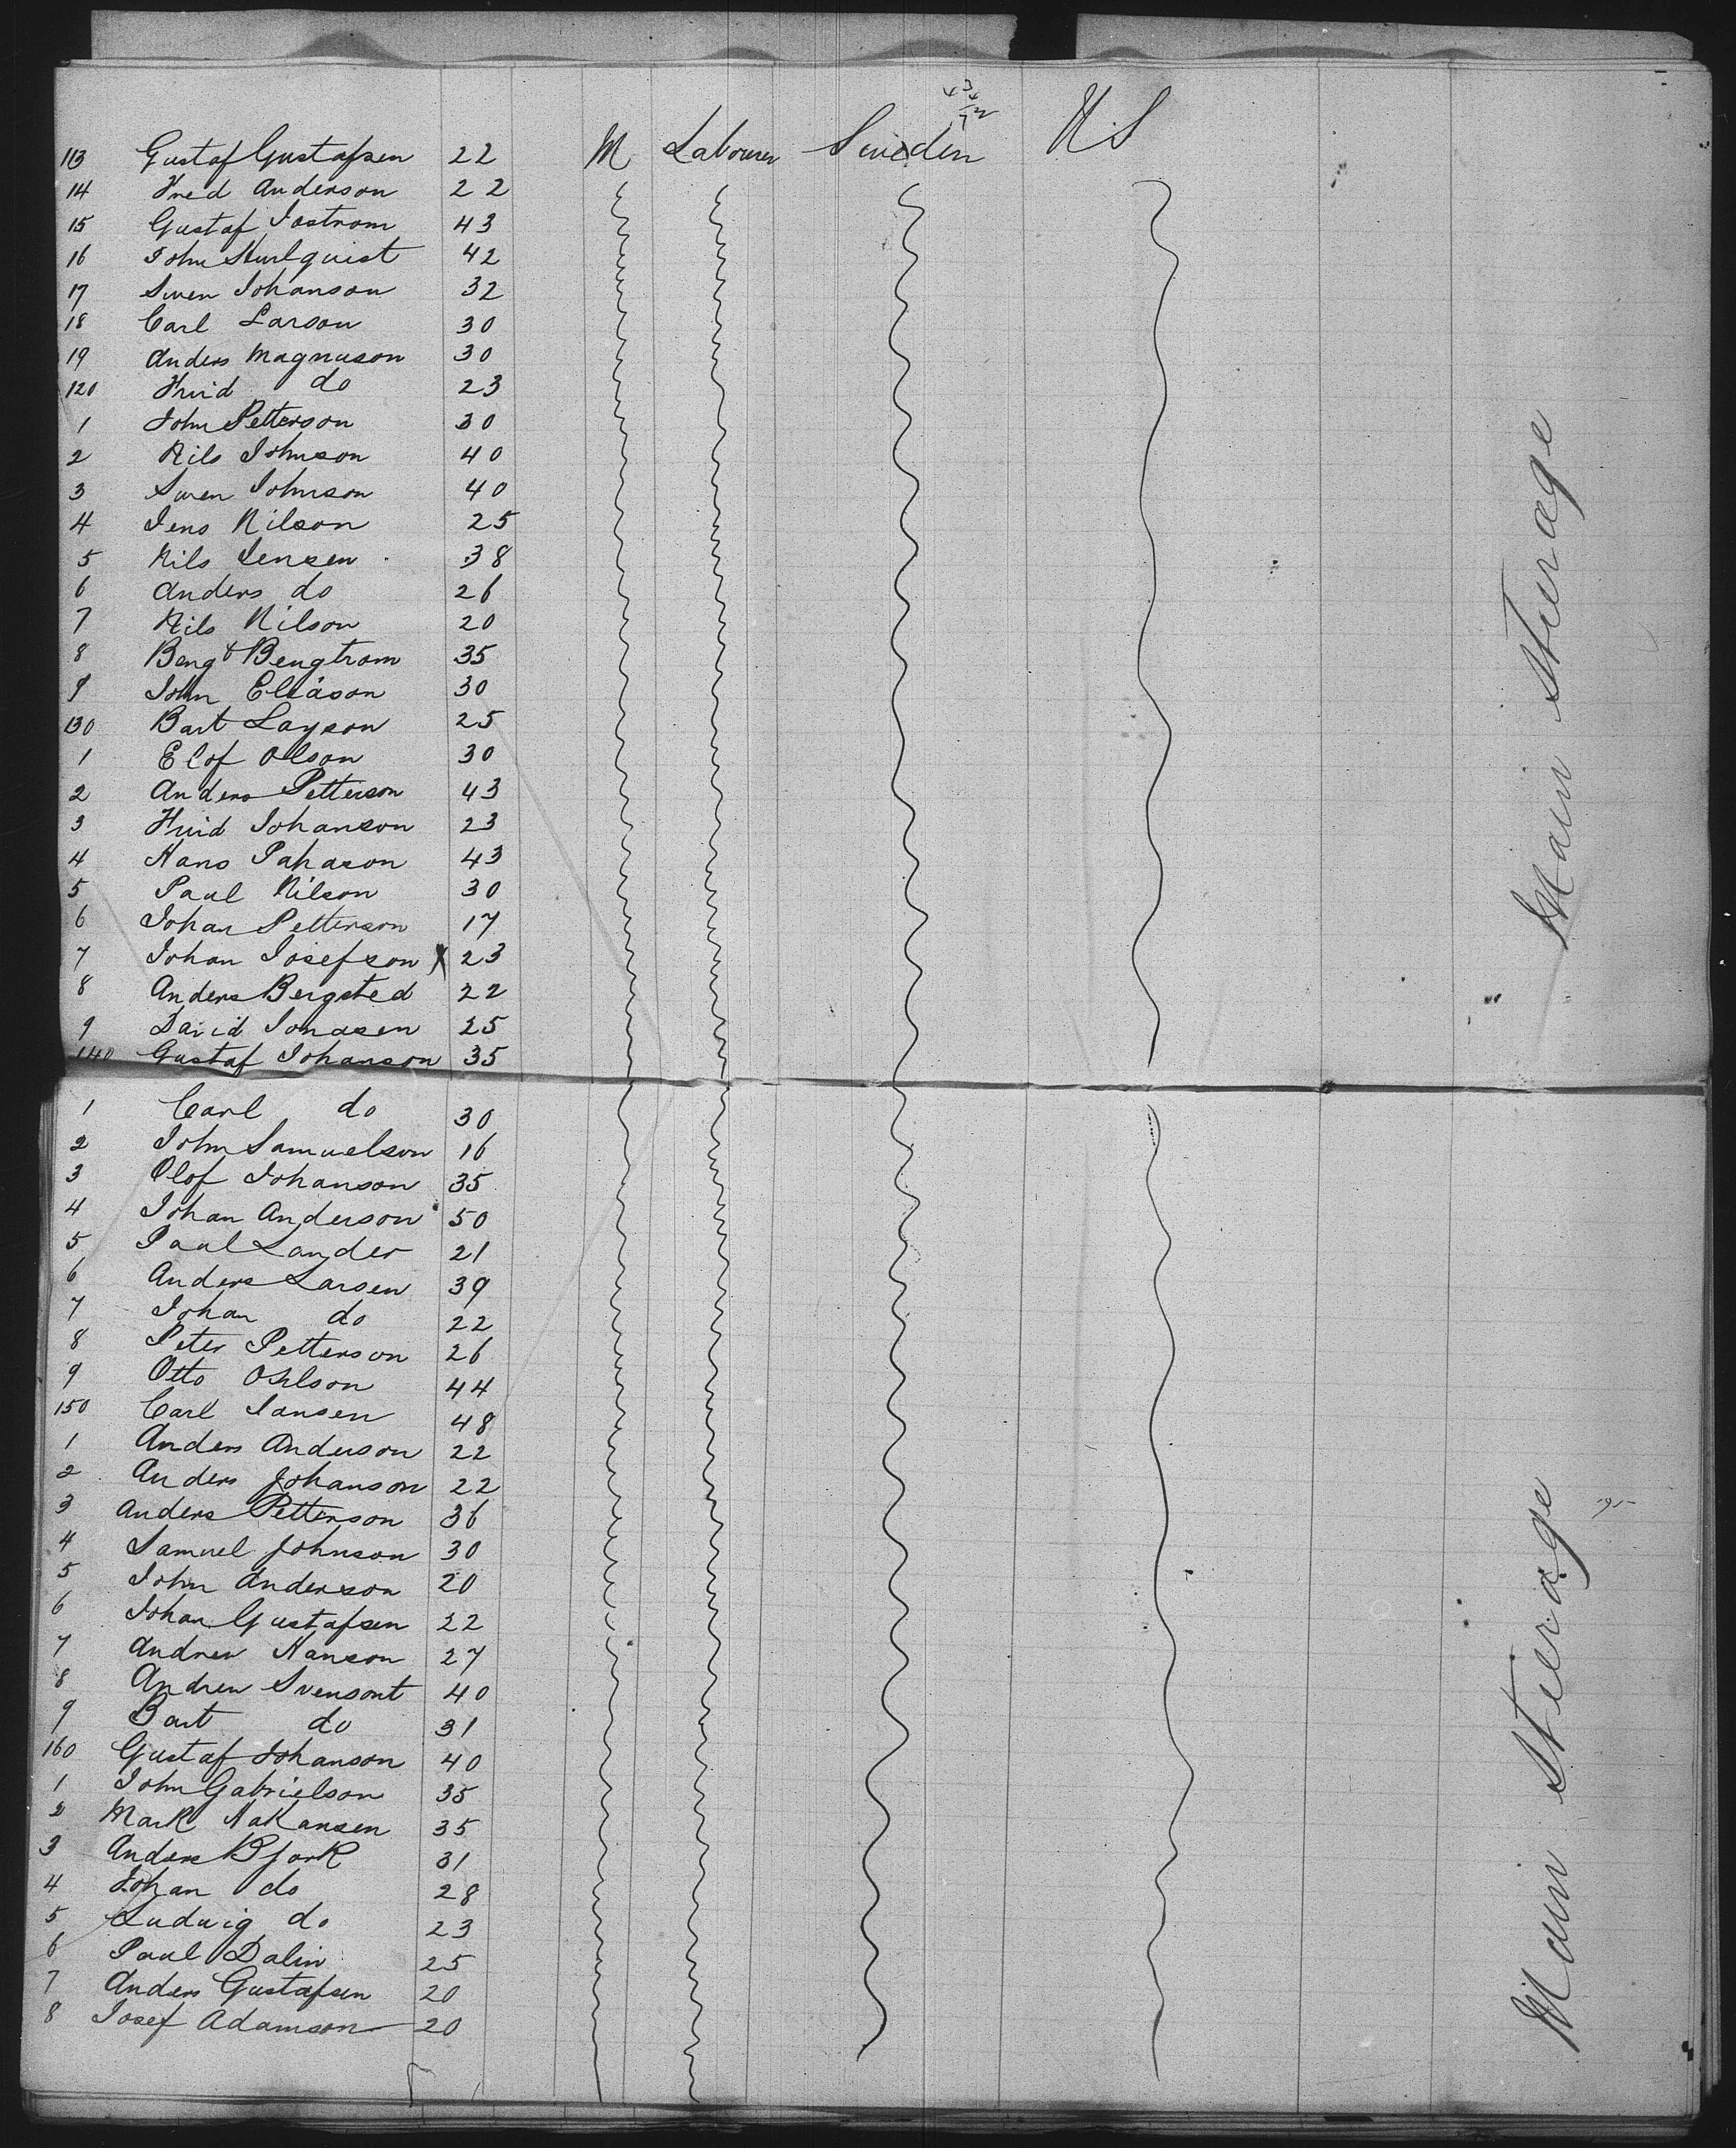 113 Gustaf Gustafsen 22 M Labourer Sweden U.S
14 Fred Anderson 22
15 Gustaf Jostrom 43
16 John 42
17 Swen Johanson 32
18 Carl Larson 30
19 Anders Magnuson 30
120 do 23
1 John Petterson 30
2 Nils Johnson 40
3 Swen Johnson 40
4 Jens Nilson 25
5 Nils Jensen 38
6 Anders do 26
7 Nils Nilson 20
8 Bengt Bengtrom 35
9 John Eliason 30
130 Bart Layson 25
1 Elof Olson 30
2 Anders Petterson 43
3 Johanson 23
4 Hans 43
5 Paul Nilson 30
6 Johan Petterson 17
7 Johan Josefson X 23
8 Anders Bergsted 22
9 David Jonasen 25
140 Gustaf Johanson 35
1 Carl do 30
2 John Samuelson 16
3 Olof Johanson 35
4 Johan Anderson 50
5 Paul Lander 21
6 Anders Larsen 39
7 Johan do 22
8 Peter Petterson 26
9 Otto Ohlson 44
150 Carl Jansen 48
1 Anders Anderson 22
2 Anders Johanson 22
3 Anders Petterson 36
4 Samuel Johnson 30
5 John Anderson 20
6 Johan Gustafsen 22
7 Andrew Hanson 27
8 Andrew Svensont 40
9 Bart do 31
160 Gustaf Johanson 40
1 John Gabrielson 35
2 Mark Hakansen 35
3 Anders Bjork 31
4 Johan do 28
5 Ludwig do 23
6 Paul Dalin 25
7 Anders Gustafsen 20
8 Josef Adamson 20
Main Sterage
Main Stierage